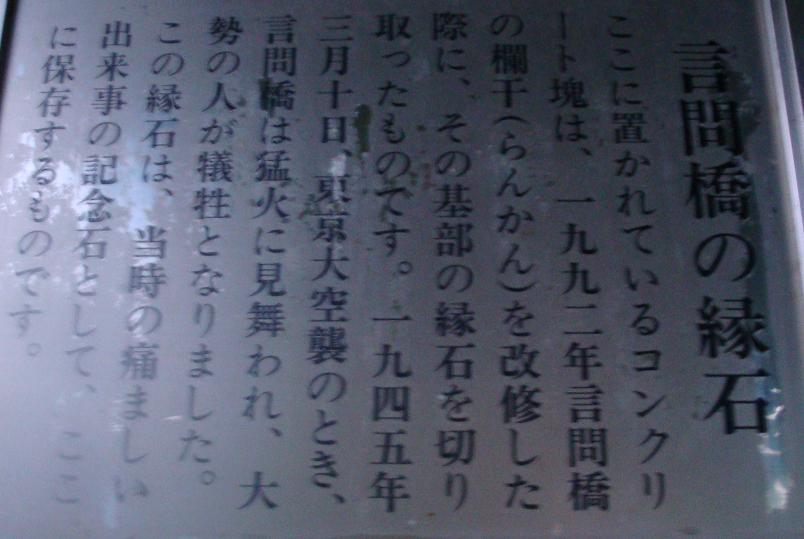 言問橋の縁石
ここに置かれているコンクリ
ート塊は、一九九二年言問橋
の欄干(らんかん)を改修した
際に、その基部の縁石を切り
取ったものです。一九四五年
三月十日、東京大空襲のとき、
言問橋は猛火に見舞われ、大
勢の人が犠牲となりました。
この縁石は、当時の痛ましい
出来事の記念石として、ここ
に保存するものです。